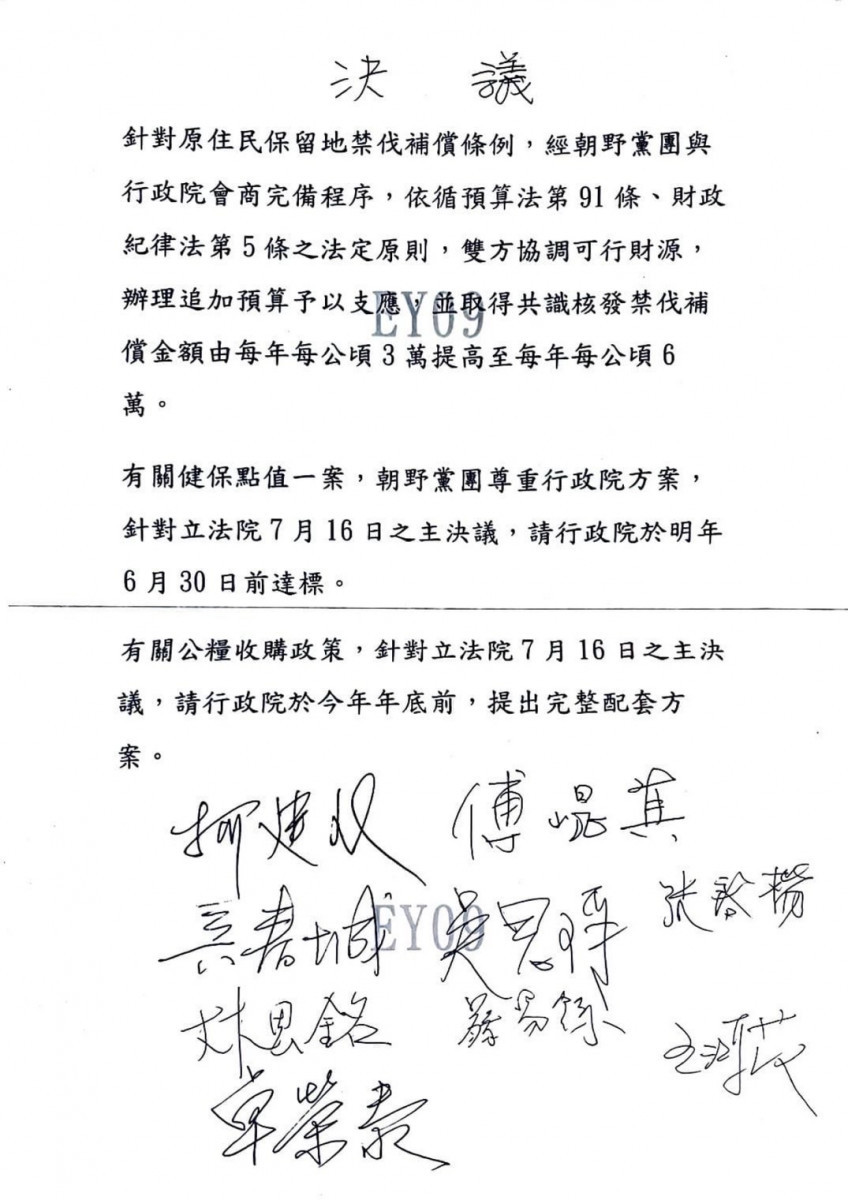 決　議
針對原住民保留地禁伐補償條例，經朝野黨團與
行政院會商完備程序，依循預算法第 91 條、財政
紀律法第 5 條之法定原則，雙方協調可行財源，
辦理追加預算予以支應，並取得共識核發禁伐補
償金額由每年每公頃 3 萬提高至每年每公頃 6
萬。
有關健保點值一案，朝野黨團尊重行政院方案，
針對立法院 7 月 16 日之主決議，請行政院於明年
6 月 30 日前達標。
有關公糧收購政策，針對立法院 7 月 16 日之主決
議，請行政院於今年年底前，提出完整配套方
案。
EY09
EY09
柯建
傅崐萁
吳思瑤
林思銘
卓榮泰